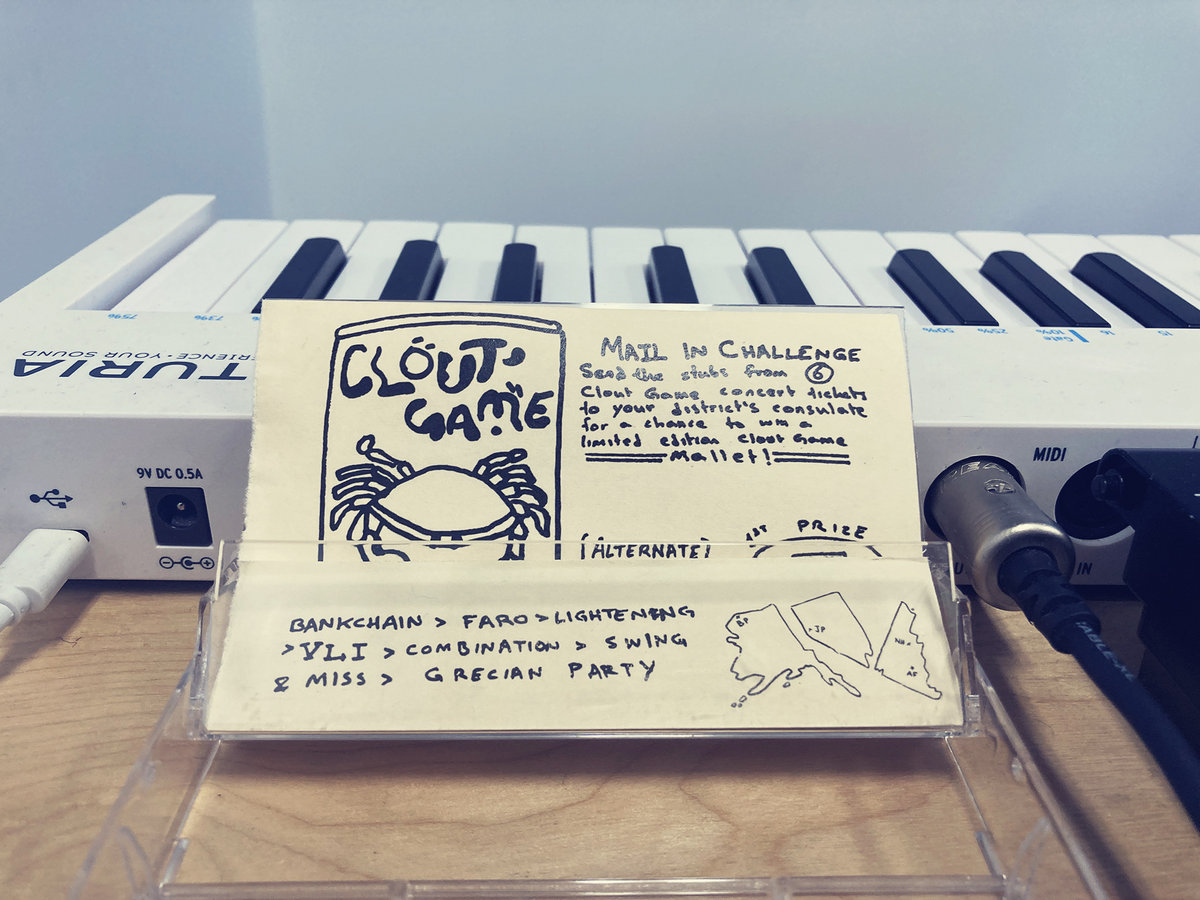 75%
73%
50%
25%
10%
Gate
16
15
TURIA
ERIENCE • YOUR SOUND
9V DC 0.5A
MIDI
IN
CLOUT
GAME
MAIL IN CHALLENGE
Send the stubs from 6
Clout Game concert tickets
to your district's consulate
for a chance to win a
limited edition Clout Game
Mallet!
(ALTERNATE)
1ST PRIZE
BANKCHAIN > FARO > LIGHTENENG
> VLI > COMBINATION > SWING
& MISS > GRECIAN PARTY
JP
NH